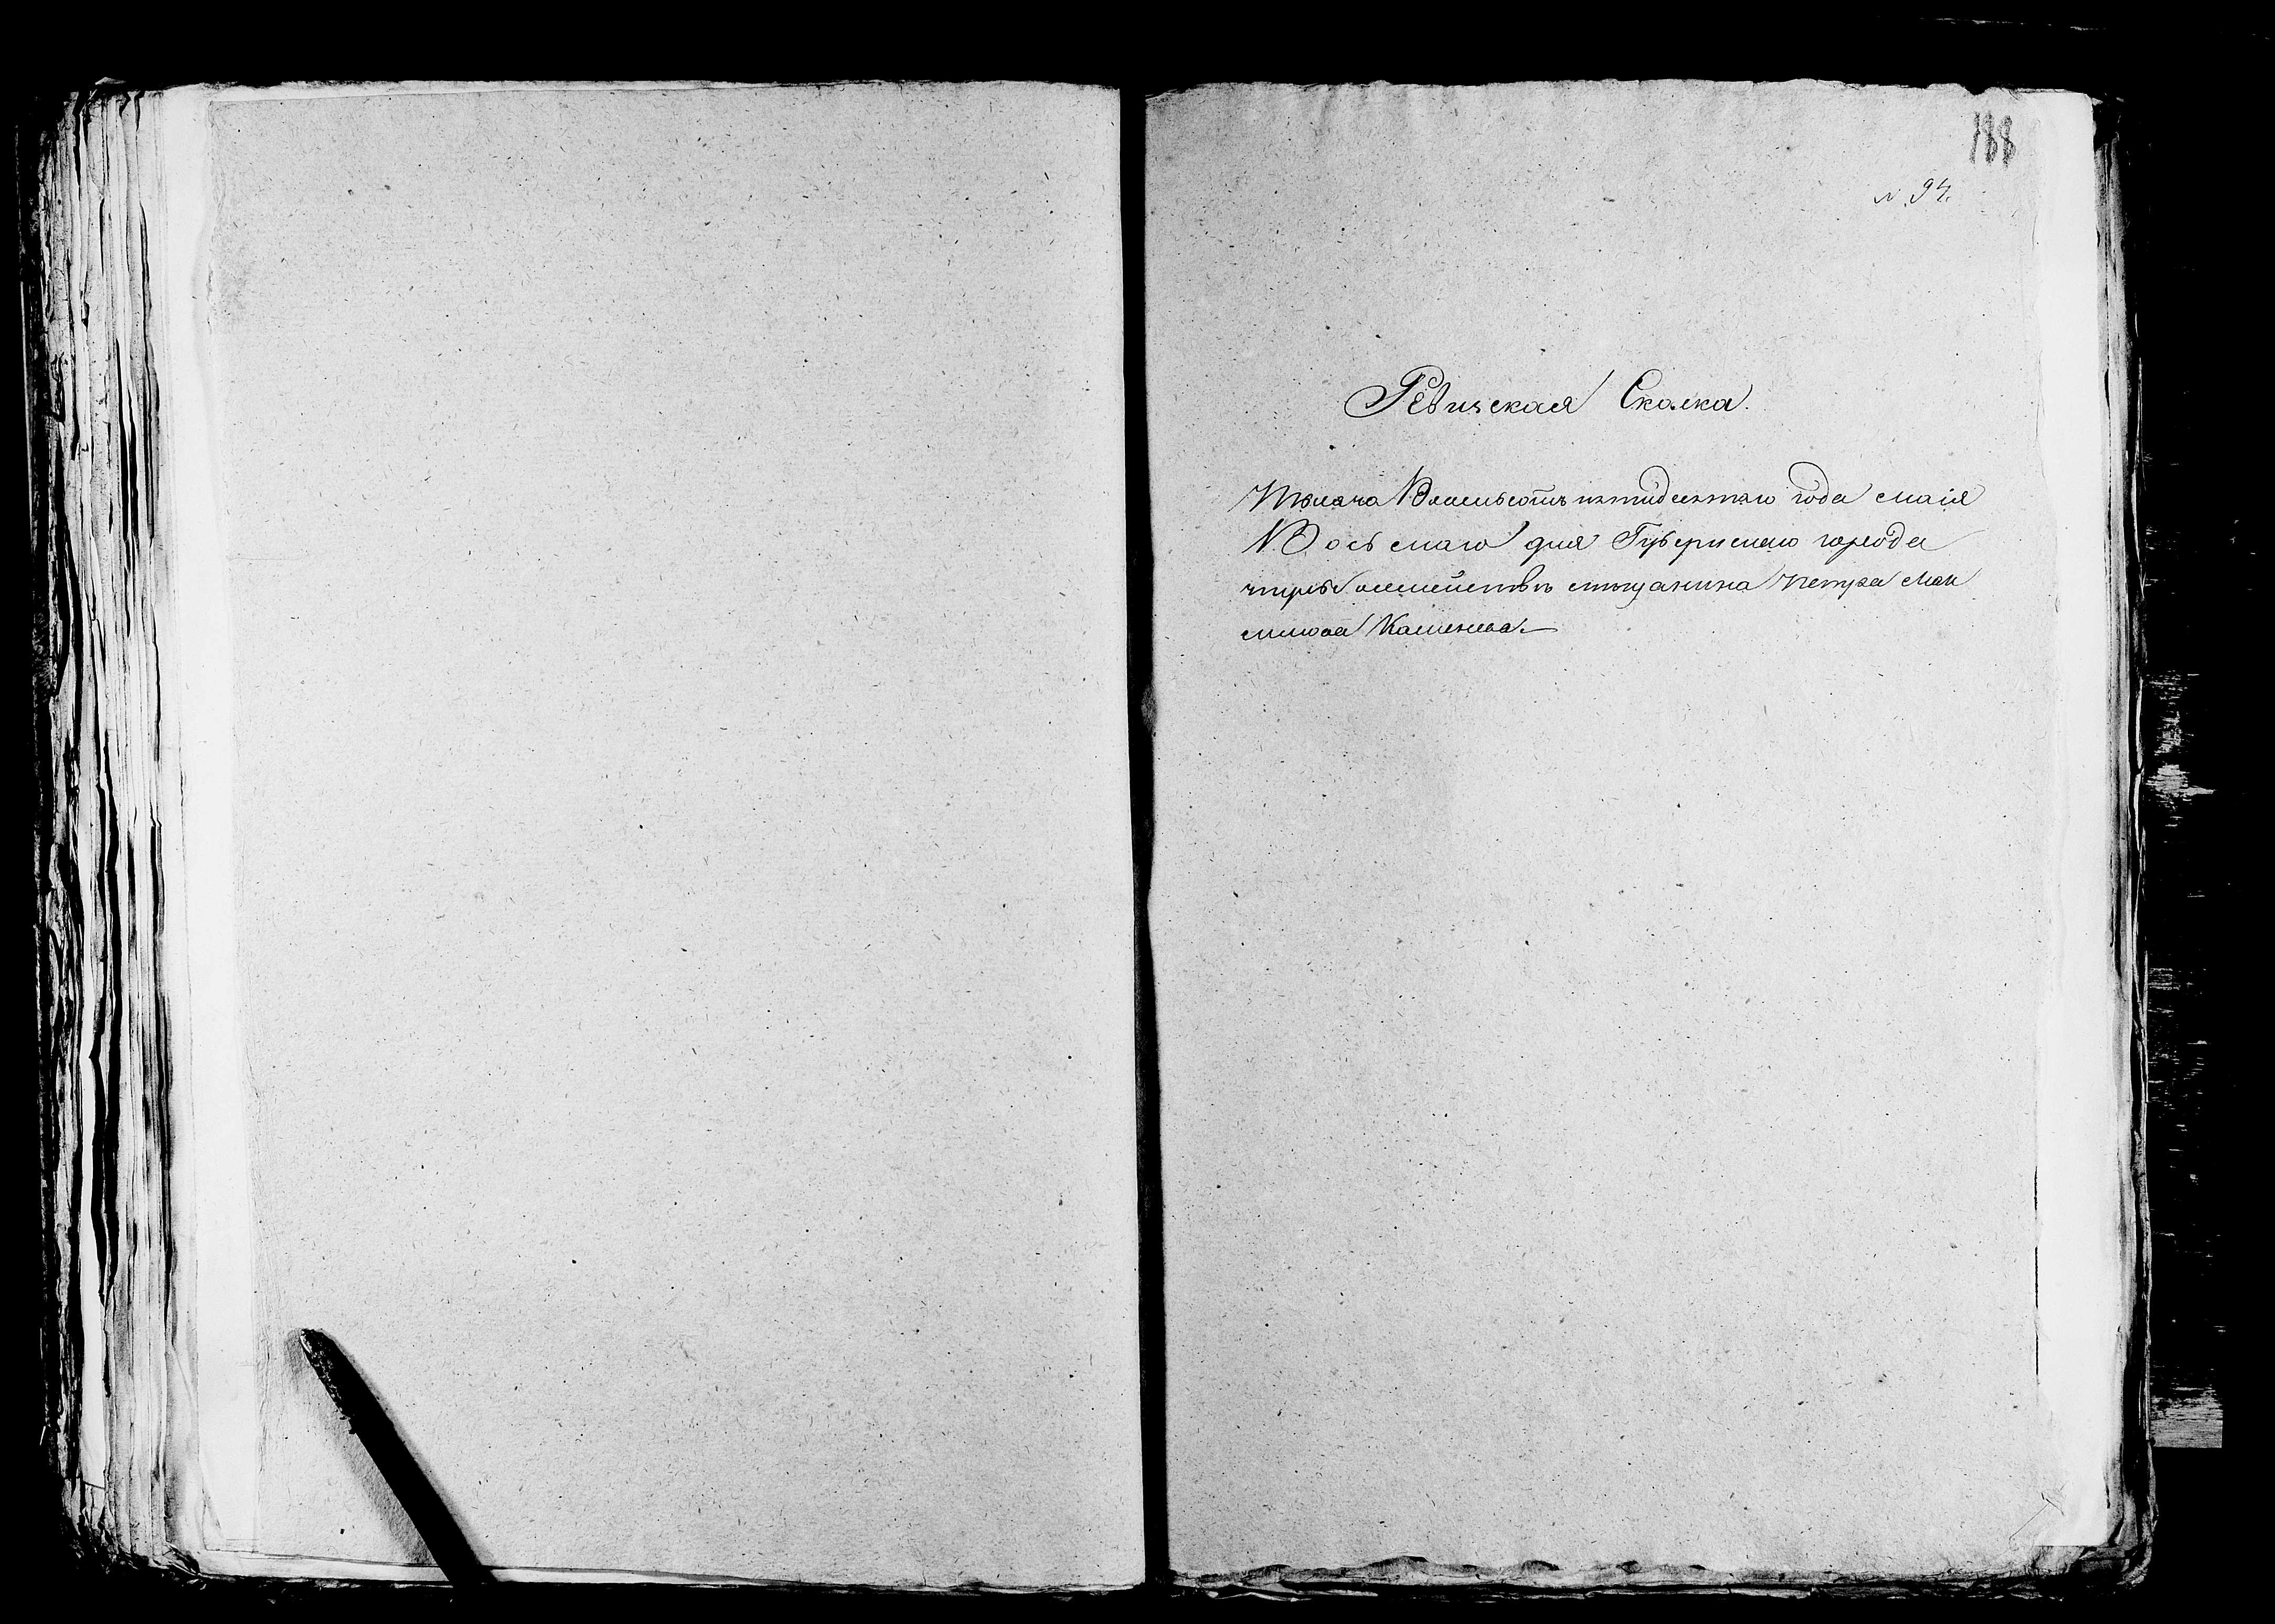 188
№ 94.
Ревизская Сказка.
Тысяча Восемьсотъ пятидесятаго года маія
Восьмаго дня Губернскаго города
о семействѣ мѣщанина Петра Мак
симова